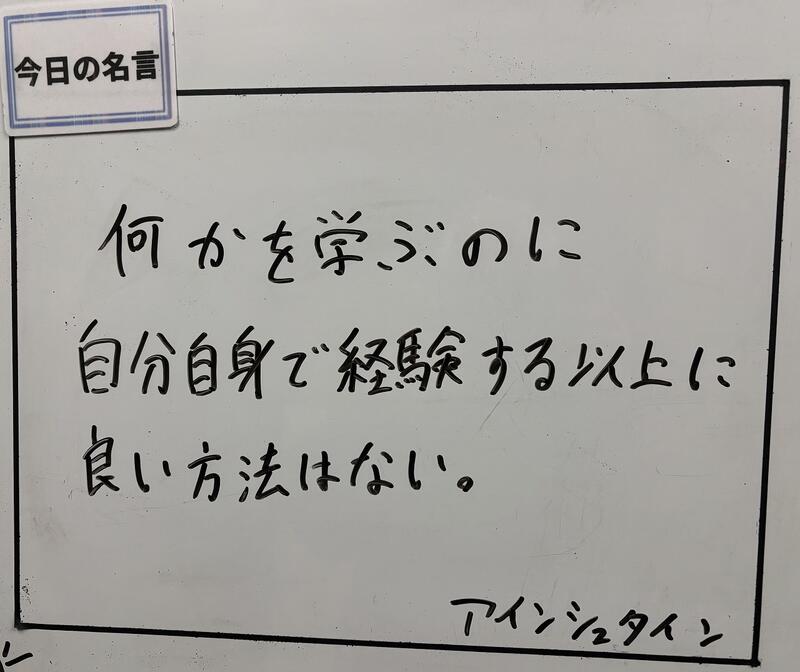 今日の名言
何かを学ぶのに
自分自身で経験する以上に
良い方法はない。
アインシュタイン